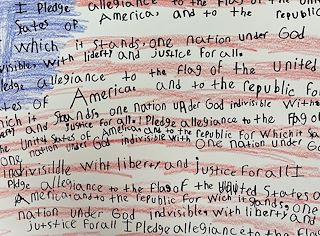 I Pledge allegiance to the flag of the
States of America, and to the republic
which it stands, one nation under God
visible, with liberty and justice for all.
Pledge allegiance to the flag of the United
tes of America and to the republic for
hich it Stands, one nation under God indivisible with
and justice for all. I Pledge allegiance to the flag of
the United States of America, and to the republic for which it
one nation under God indivisible with one nation under Go
indivisiddle with liberty and justice for all I
Pldge allegiance to the flag of the United States o
America and to the republic for wich it stands, one
nation under God indivisible, with liberty and
justice for all I Pledge allegiance to the